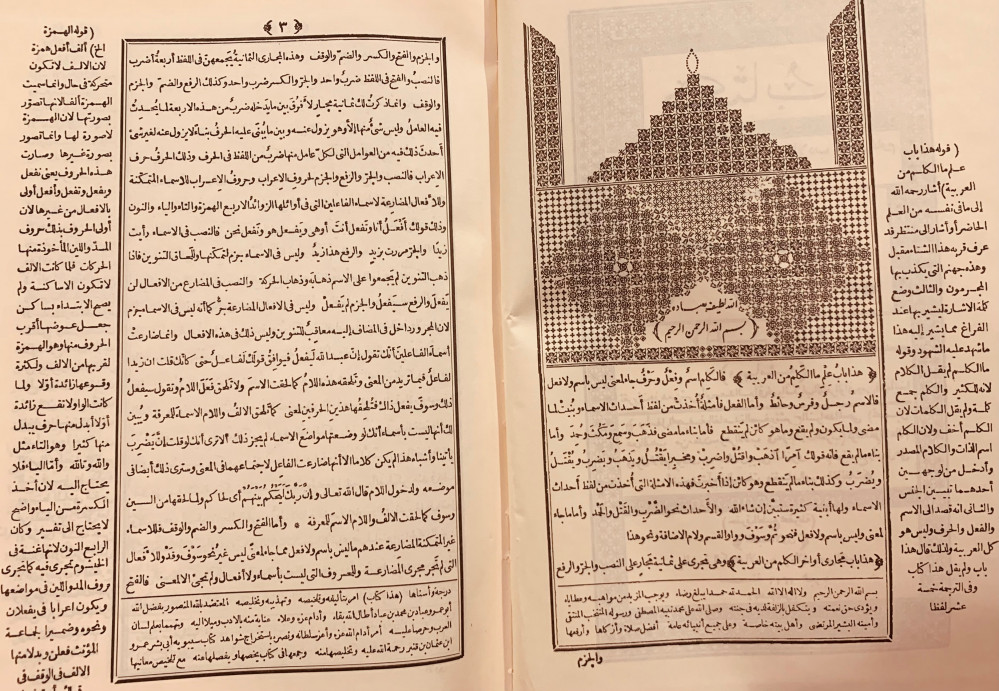 الله لطيف بعباده
بسم الله الرحمن الرحيم
﴿ هذا باب علم ما الكلم من العربية ﴾ فالكلم اسم وفعل وحرف جاء لمعنى ليس باسم ولا فعل
فالاسم رجل وفرس وحائط وأما الفعل فأمثلة أخذت من لفظ أحداث الاسماء وبنيت لما
مضى ولما يكون ولم يقع وما هو كائن لم ينقطع فأما بناء ما مضى فذهب وسمع ومكث وحمد وأما
بناء ما لم يقع فانه قولك آمرا اذهب واقتل واضرب ومخبرا يقتل ويذهب ويضرب ويقتل
ويضرب وكذلك بناء ما لم ينقطع وهو كائن إذا أخبرت فهذه الامثلة التى أخذت من لفظ أحداث
الاسماء ولها أبنية كثيرة ستبين إن شاء الله والأحداث نحو الضرب والقتل والحمد وأما ما جاء
لمعنى وليس باسم ولا فعل فنحو ثم وسوف وواو القسم ولام الاضافة ونحو هذا
﴿ هذا باب مجارى أواخر الكلم من العربية ﴾ وهى تجرى على ثمانية مجار على النصب والجر والرفع
بسم الله الرحمن الرحيم ولا اله الا الله الحمد لله
والجزم
( قوله هذا باب
علم ما الكلم من
العربية ) أشار رحمه الله
إلى ما فى نفسه من العلم
الحاضر أو أشار الى منتظر قد
عرف قربه هذا الشتاء مقبل
وهذه جهنم التى يكذب بها
المجرمون والثالث وضع
كلمة الاشارة ليشير بها عند
الفراغ مما يشير إليه هذا
ما شهد عليه الشهود وقوله
ما الكلم لم يقل الكلام
لانه للكثير والكلم جمع
كلمة ولم يقل الكلمات لان
الكلم أخف ولان الكلم
اسم الذات والكلام المصدر
وأدخل من لوجهين
أحدهما تبيين الجنس
والثانى انه قصد الى الاسم
والفعل والحرف وليس هو
كل العربية ولذلك قال هذا
باب ولم يقل هذا كتاب
وفى الترجمة خمسة
عشر لفظا
﴿ ٣ ﴾
والجزم والفتح والكسر والضم والوقف وهذه المجارى الثمانية يجمعهن فى اللفظ أربعة أضرب
فالنصب والفتح فى اللفظ ضرب واحد والجر والكسر ضرب واحد وكذلك الرفع والضم والجزم
والوقف وانما ذكرت لك ثمانية مجار لأفرق بين ما يدخله ضرب من هذه الاربعة لما يحدث
فيه العامل وليس شئ منها الا وهو يزول عنه وبين ما يبنى عليه الحرف بناء لا يزول عنه لغير شئ
أحدث ذلك فيه من العوامل التى لكل عامل منها ضرب من اللفظ فى الحرف وذلك الحرف حرف
الاعراب فالنصب والجر والرفع والجزم لحروف الاعراب وحروف الاعراب للاسماء المتمكنة
وللأفعال المضارعة لاسماء الفاعلين التى فى أوائلها الزوائد الاربع الهمزة والتاء والياء والنون
وذلك قولك أفعل أنا وتفعل أنت أو هى ويفعل هو ونفعل نحن فالنصب فى الاسماء رأيت
زيدا والجر مررت بزيد والرفع هذا زيد وليس فى الاسماء جزم لتمكنها وللحاق التنوين فاذا
ذهب التنوين لم يجمعوا على الاسم ذهابه وذهاب الحركة والنصب فى المضارع من الافعال لن
يفعل والرفع سيفعل والجزم لم يفعل وليس فى الافعال المضارعة جر كما أنه ليس فى الاسماء جزم
لان المجرور داخل فى المضاف إليه معاقب للتنوين وليس ذلك فى هذه الافعال وانما ضارعت
أسماء الفاعلين أنك تقول إن عبد الله ليفعل فيوافق قولك لفاعل حتى كأنك قلت ان زيدا
لفاعل فيما تريد من المعنى وتلحقه هذه اللام كما لحقت الاسم ولا تلحق فعل اللام وتقول سيفعل
ذلك وسوف يفعل ذلك فتلحقها هذين الحرفين لمعنى كما تلحق الالف واللام الاسماء للمعرفة ويبين
لك أنها ليست بأسماء أنك لو وضعتها مواضع الاسماء لم يجز ذلك ألا ترى أنك لو قلت إن يضرب
يأتينا وأشباه هذا لم يكن كلاما الا أنها ضارعت الفاعل لاجتماعهما فى المعنى وسترى ذلك أيضا فى
موضعه ولدخول اللام قال الله تعالى وإن ربك ليحكم بينهم أى لحاكم ولما لحقها من السين
وسوف كما لحقت الالف واللام الاسم للمعرفة وأما الفتح والكسر والضم والوقف فللاسماء
غير المتمكنة المضارعة عندهم ما ليس باسم ولا فعل مما جاء لمعنى ليس غير نحو سوف وقد وللأفعال
التى لم تجر مجرى المضارعة وللحروف التى ليست بأسماء ولا أفعال ولم تجئ الا لمعنى فالفتح
( قوله الهمزة
الخ ) ألف أفعل همزة
لان الالف لا تكون
متحركة فى حال وانما سميت
الهمزة ألفا لانها تصور
بصورتها لان الهمزة
لا صورة لها وانما تصور
بصورة غيرها وصارت
هذه الحروف يعنى نفعل
ويفعل وتفعل وأفعل أولى
بالافعال من غيرها لان
أولى الحروف بذلك حروف
المد واللين المأخوذة منها
الحركات فلما كانت الالف
لا تكون الا ساكنة ولم
يصح الابتداء بساكن
جعل عوضها أقرب
الحروف منها وهو الهمزة
لقربها من الالف ولكثرة
وقوعها زائدة أولا ولما
كانت الواو لا تقع زائدة
أولا أبدل منها حرف يبدل
منها كثيرا وهو التاء مثل
والله وتالله وأما الياء فلا
يحتاج اليه لان أخذ
الكسرة من الياء واضح
لا يحتاج الى تفسير وكان
الرابع النون لانها غنة فى
الخيشوم تجرى فيه كما تجرى
حروف المد واللين فى مواضعها
ويكون اعرابا فى يفعلان
ونحوه وضميرا لجماعة
المؤنث فعلن وبدلا منها
الالف فى الوقف فى